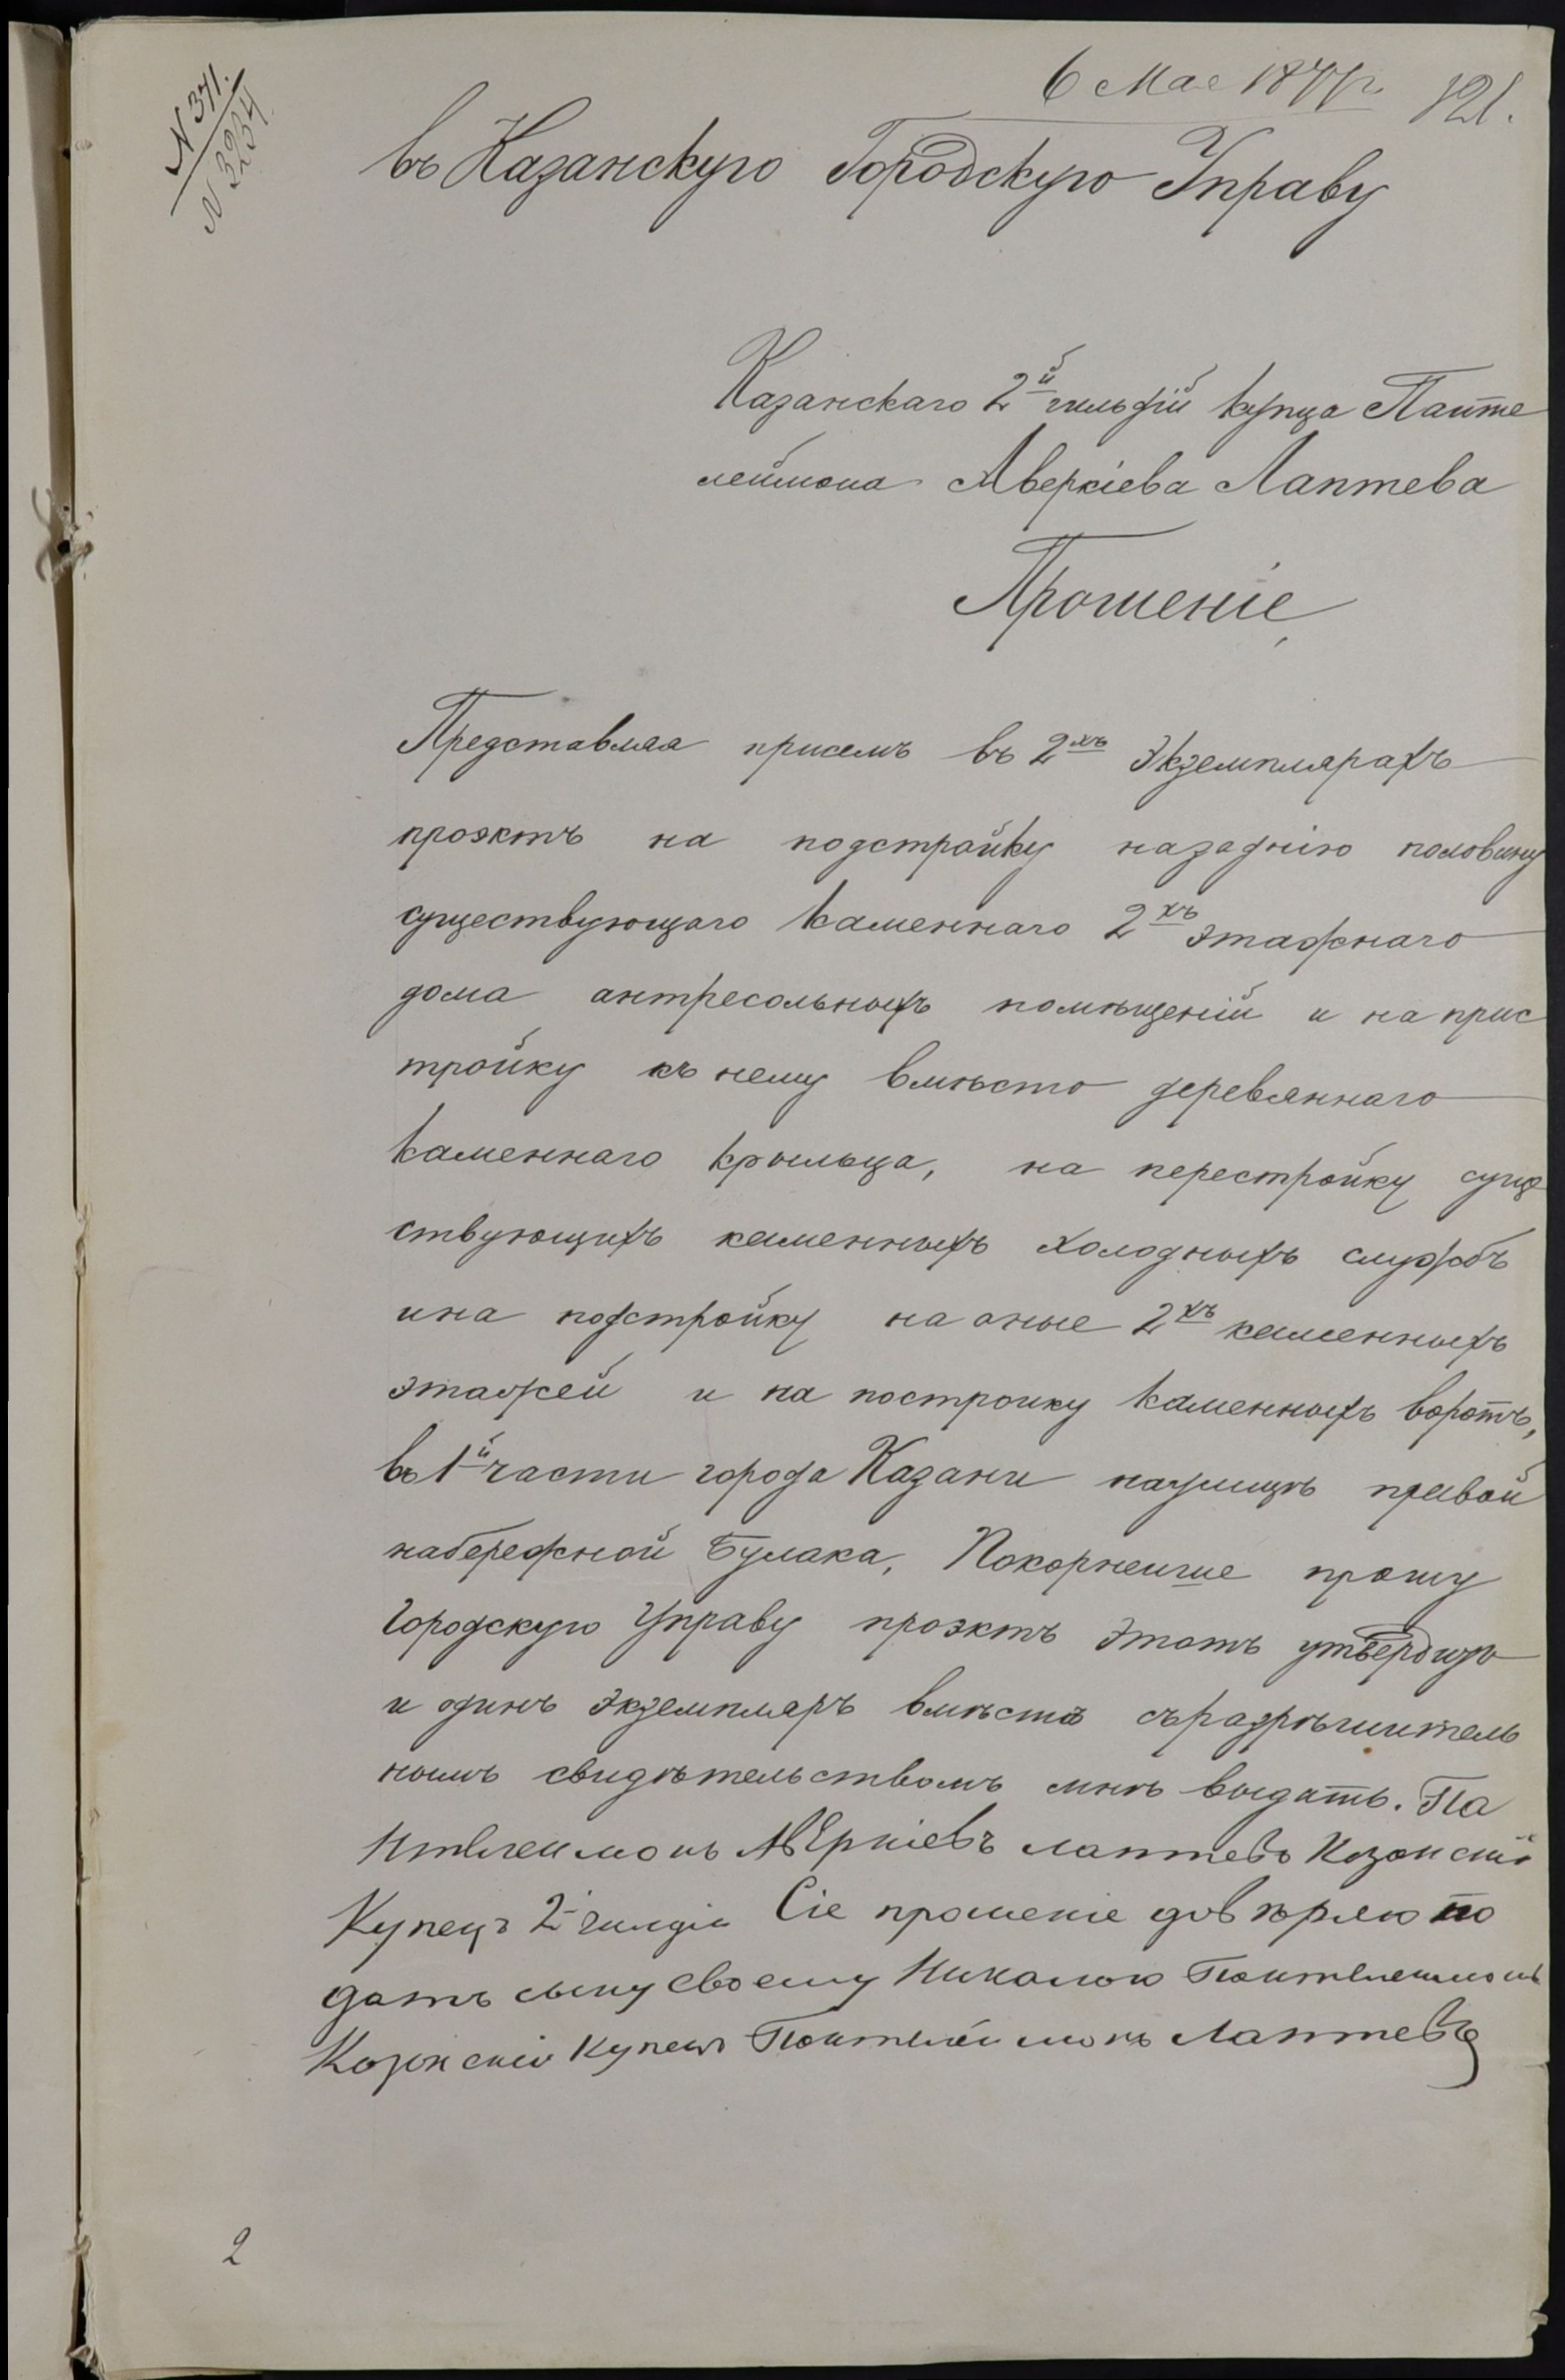 N 371.
N 3234.
6 Мая 1877 г.
121.
въ Казанскую Городскую Управу
Казанскаго 2й гильдій купца Панте
леймона Аверкіева Лаптева
Прошеніе
Представляя присемъ въ 2хъ экземплярахъ
проэктъ на подстройку назаднію половину
существующаго каменнаго 2хъ этажнаго
дома антресольныхъ помѣщеній и на прис
тройку къ нему вмѣсто деревяннаго
каменнаго крыльца, на перестройку суще
ствующихъ каменныхъ холодныхъ службъ
и на подстройку на оные 2хъ каменныхъ
этажей и на постройку каменныхъ воротъ,
въ 1й части города Казани наулицѣ правой
набережной Булака, Покорнейше прошу
Городскую Управу проэктъ этотъ утвердить
и одинъ экземпляръ вмѣстѣ съ разрѣшитель
нымъ свидѣтельствомъ мнѣ выдать. Па
нтелеимонъ Аверкіевъ лаптевъ Козонскій
Купецъ 2й гилдіи Сіе прошеніе довѣряю по
дать сыну своему Николою Понтелеимонов
Козонскій Купецъ Понтелеймонъ Лаптевъ
2